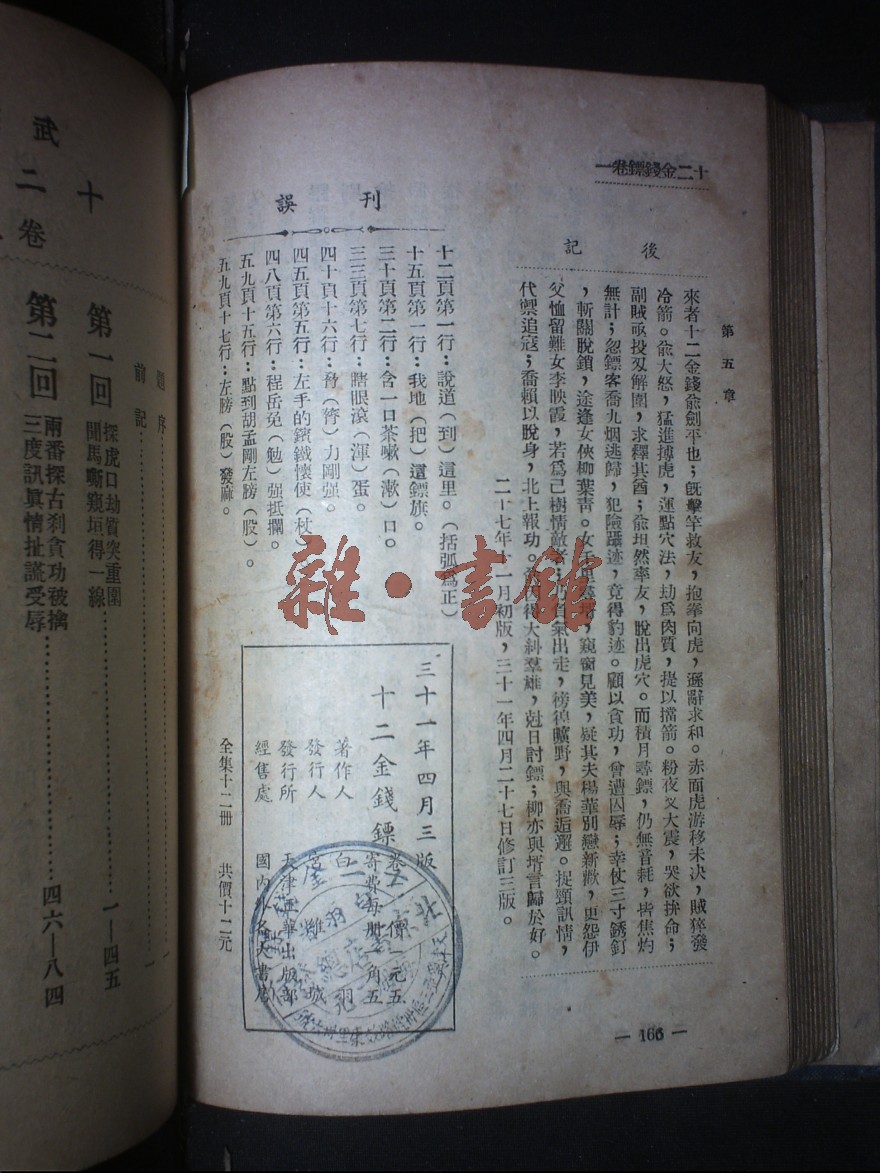 十二金錢鏢卷一
第五章
後記
來者十二金錢兪劍平也;旣擊竿救友,抱拳向虎,遜辭求和。赤面虎游移未決,賊猝發
冷箭。兪大怒,猛進搏虎,運點穴法,劫爲肉質,提以擋箭。粉夜叉大震,哭欲拚命;
副賊亟投刄解圍,求釋其酋;兪坦然率友,脫出虎穴。而積月尋鏢,仍無音耗,皆焦灼
無計;忽鏢客喬九烟逃歸,犯險躡迹,竟得豹迹。顧以貪功,曾遭囚辱;幸仗三寸銹釘
,斬關脫鎖,途逢女俠柳葉青。女千里尋
,窺窗見美,疑其夫楊華別戀新歡,更怨伊
父恤留難女李映霞,若爲己樹情敵者
氣出走,徬徨曠野,與喬逅邂。捉頸訊情,
代禦追寇;喬賴以脫身,北上報功。
得大糾羣雄,尅日討鏢;柳亦與壻言歸於好。
二十七年十一月初版,三十一年四月二十七日修訂三版。
刊誤
十二頁第一行:說道(到)這里。(括弧爲正)
十五頁第一行:我地(把)這鏢旗。
三十頁第二行:含一口茶嗽(漱)口。
三三頁第七行:瞎眼滾(渾)蛋。
四十頁十六行:脅(膂)力剛强。
四五頁第五行:左手的鑌鐵懷使(杖)
四八頁第六行:程岳免(勉)强抵攔。
五九頁十五行:點到胡孟剛左勝(股)。
五九頁十七行:左勝(股)發麻。
三十一年四月三版
十二金錢鏢
卷一
價一元五
寄費每册一角五
著作人
白羽
發行人
發行所
天津正華出版部
經售處
國內外各大書店
全集十二冊 共價十二元
— 166 —
雜·書館
十
武
二
卷
題序
一
前記
一
第一回
探虎口劫質突重圍
聞馬嘶窺垣得一線
一—四五
第二回
兩番探古刹貪功被擒
三度訊眞情扯謊受辱
四六—八四